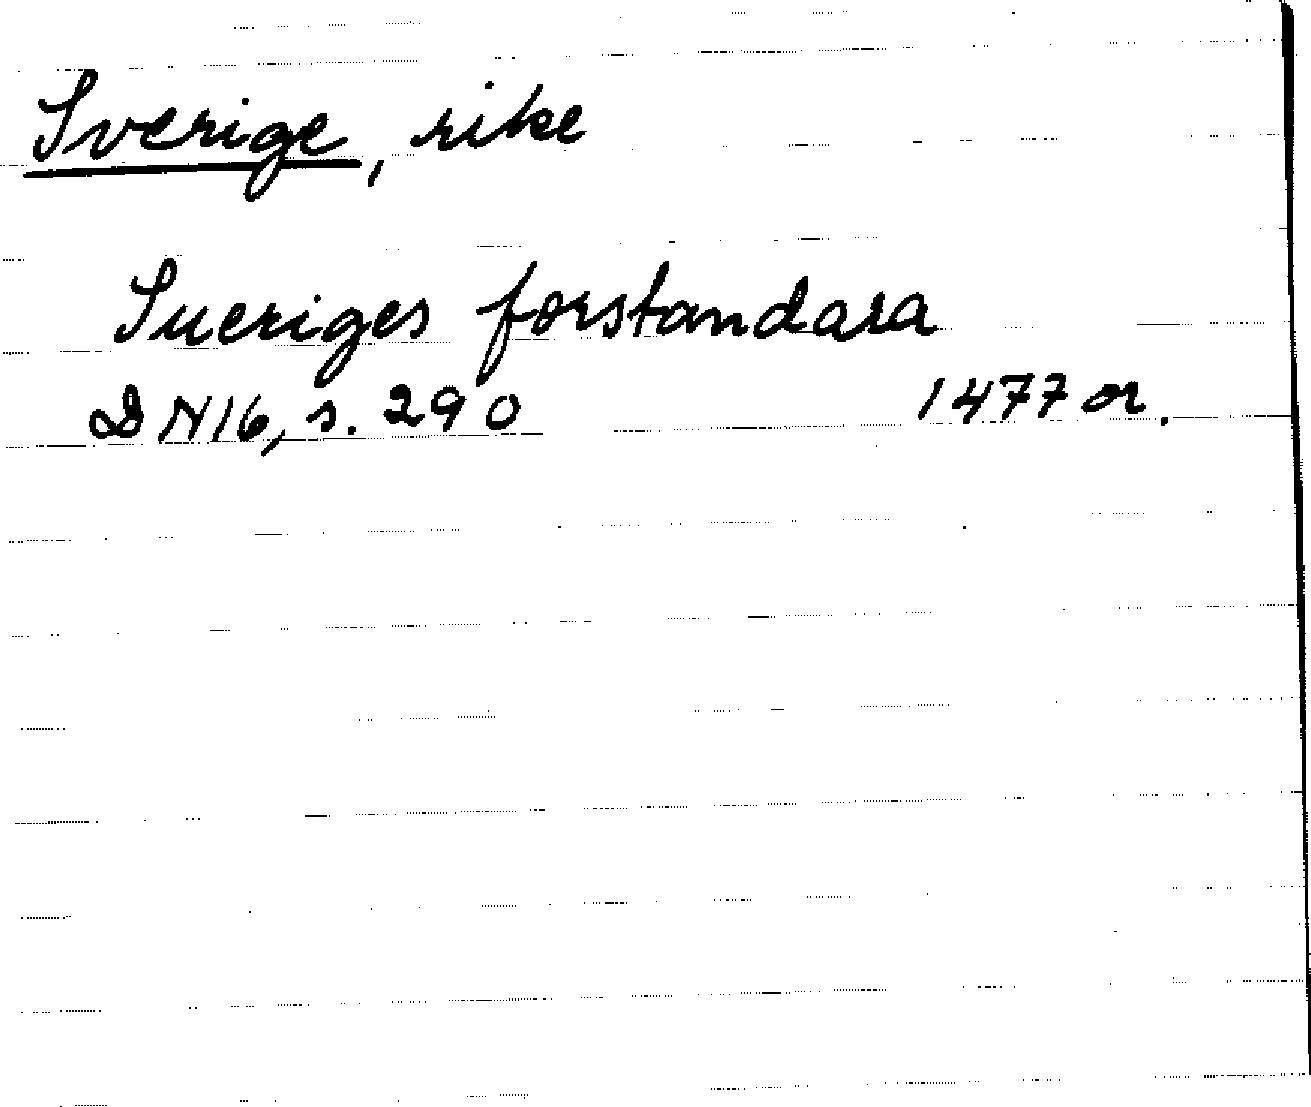 Sverige, rike
Sueriges forstandara
DN16, s. 290 1477 or.